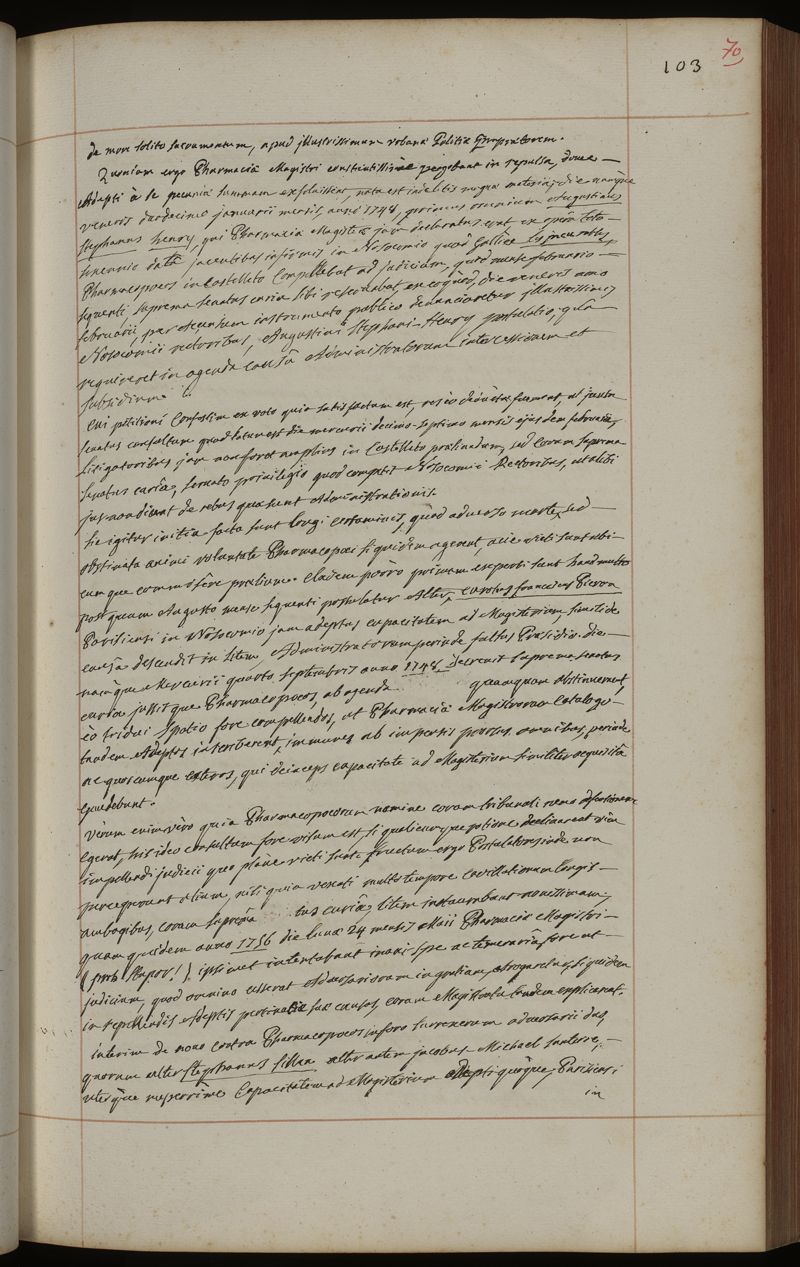 103
70
de more solito sacramentum, apud illustrissimum urbanæ Politiæ
Quoniam ergo Pharmaciæ Magistri constantissime in repulsa, donec
Adepti à se pecuniæ summam exsolvissent, nata est inde litis nova materia; die namque
veneris duodecimo januarii mensis, anni 1748, primus omnium Augustinus
Stephanus henry, qui Pharmaciæ Magister jam declaratus erat, ex opera toto
data jacentibus infirmis in Nosocomio quod Gallice les incurables,
Pharmacopœos in Castelleto Compellebat ad judicium, quod mense februario
sequenti suprema senatus curia sibi reservabat, die veneris nono
februarii, per instrumento publico denunciaretur illustrissimis
Nosocomii rectoribus, Augustini Stephani Henry postulatio, quâ
requireret in agenda causâ Administratorum intercessionem et
subsidium.
Cui petitioni Confestim ex voto quia satisfactum est, res eo fuerunt, ut juxta
senatus consultum quod latum est die mercurii decimo septimo mensis ejusdem februarii,
litigatoribus jam non foret amplius in Castelleto præliandum, sed coram suprema
senatus curiâ, servato privilegio quod competit Nosocomii Rectoribus, ut alibi
jus non dicant de rebus quæ sunt Administrationis.
hæc igitur initia facta sunt longi certaminis, quod adverso marte, sed
obstinata animi voluntate Pharmacopœi siquidem agerent, acie victi sunt ubi-
cumque commisere prælium. Cladem porrò primam experti sunt haud multo
postquam Augusto mense sequenti postulator Alter, carolus franciscus Pierron
Parisiensi in Nosocomio jam adeptus capacitatem ad Magisterium, simili de
causâ descendit in litem, Administratorum perinde fultus Præsidio. die
namque Mercurii quarto septembris anno 1748 decrevit suprema senatus
curia jussitque Pharmacopœos, ab agenda quamquam abstinerent,
eò tridui spatio fore compellendos, ut Pharmaciæ Magistrorum Catalogo
tandem Adeptos inscriberent, immunes ab impensis prorsus omnibus, perinde
ac quoscumque exteros, qui deinceps capacitate ad Magisterium similiter acquisitâ
gaudebunt.
Verum enimvero quia Pharmacopœorum nomine coram tribunali nemo
egerat, his ideo consultum fore visum est, si qualicumque ratione declinarent vim
impellendi judicii quo plane victi sunt fructum ergo Postulatores inde non
perceperunt alium, nisi quia vexati multo tempore cavillationum longis
ambagibus, coram suprema curiâ, litem instaurabant novissimam;
quam quidem anno 1756 die lunæ 24 mensis Maii Pharmaciæ Magistri
(proh stupor!) ipsimet intentabant inani spe ac temerariâ, fore ut
judicium, quod omnino Adversariorum ingentium, abrogaretur, si quidem
in repellendis Adeptis pertinaciæ suæ causas, coram Magistratu tandem explicarent.
interim de novo contra Pharmacopœos in foro surrexerunt adversarii duo,
quorum alter Stephanus fillon alter autem jacobus Michael santerre,
uterque nuperrime Capacitatem ad Magisterium Adepti quoque, Parisiensi
in